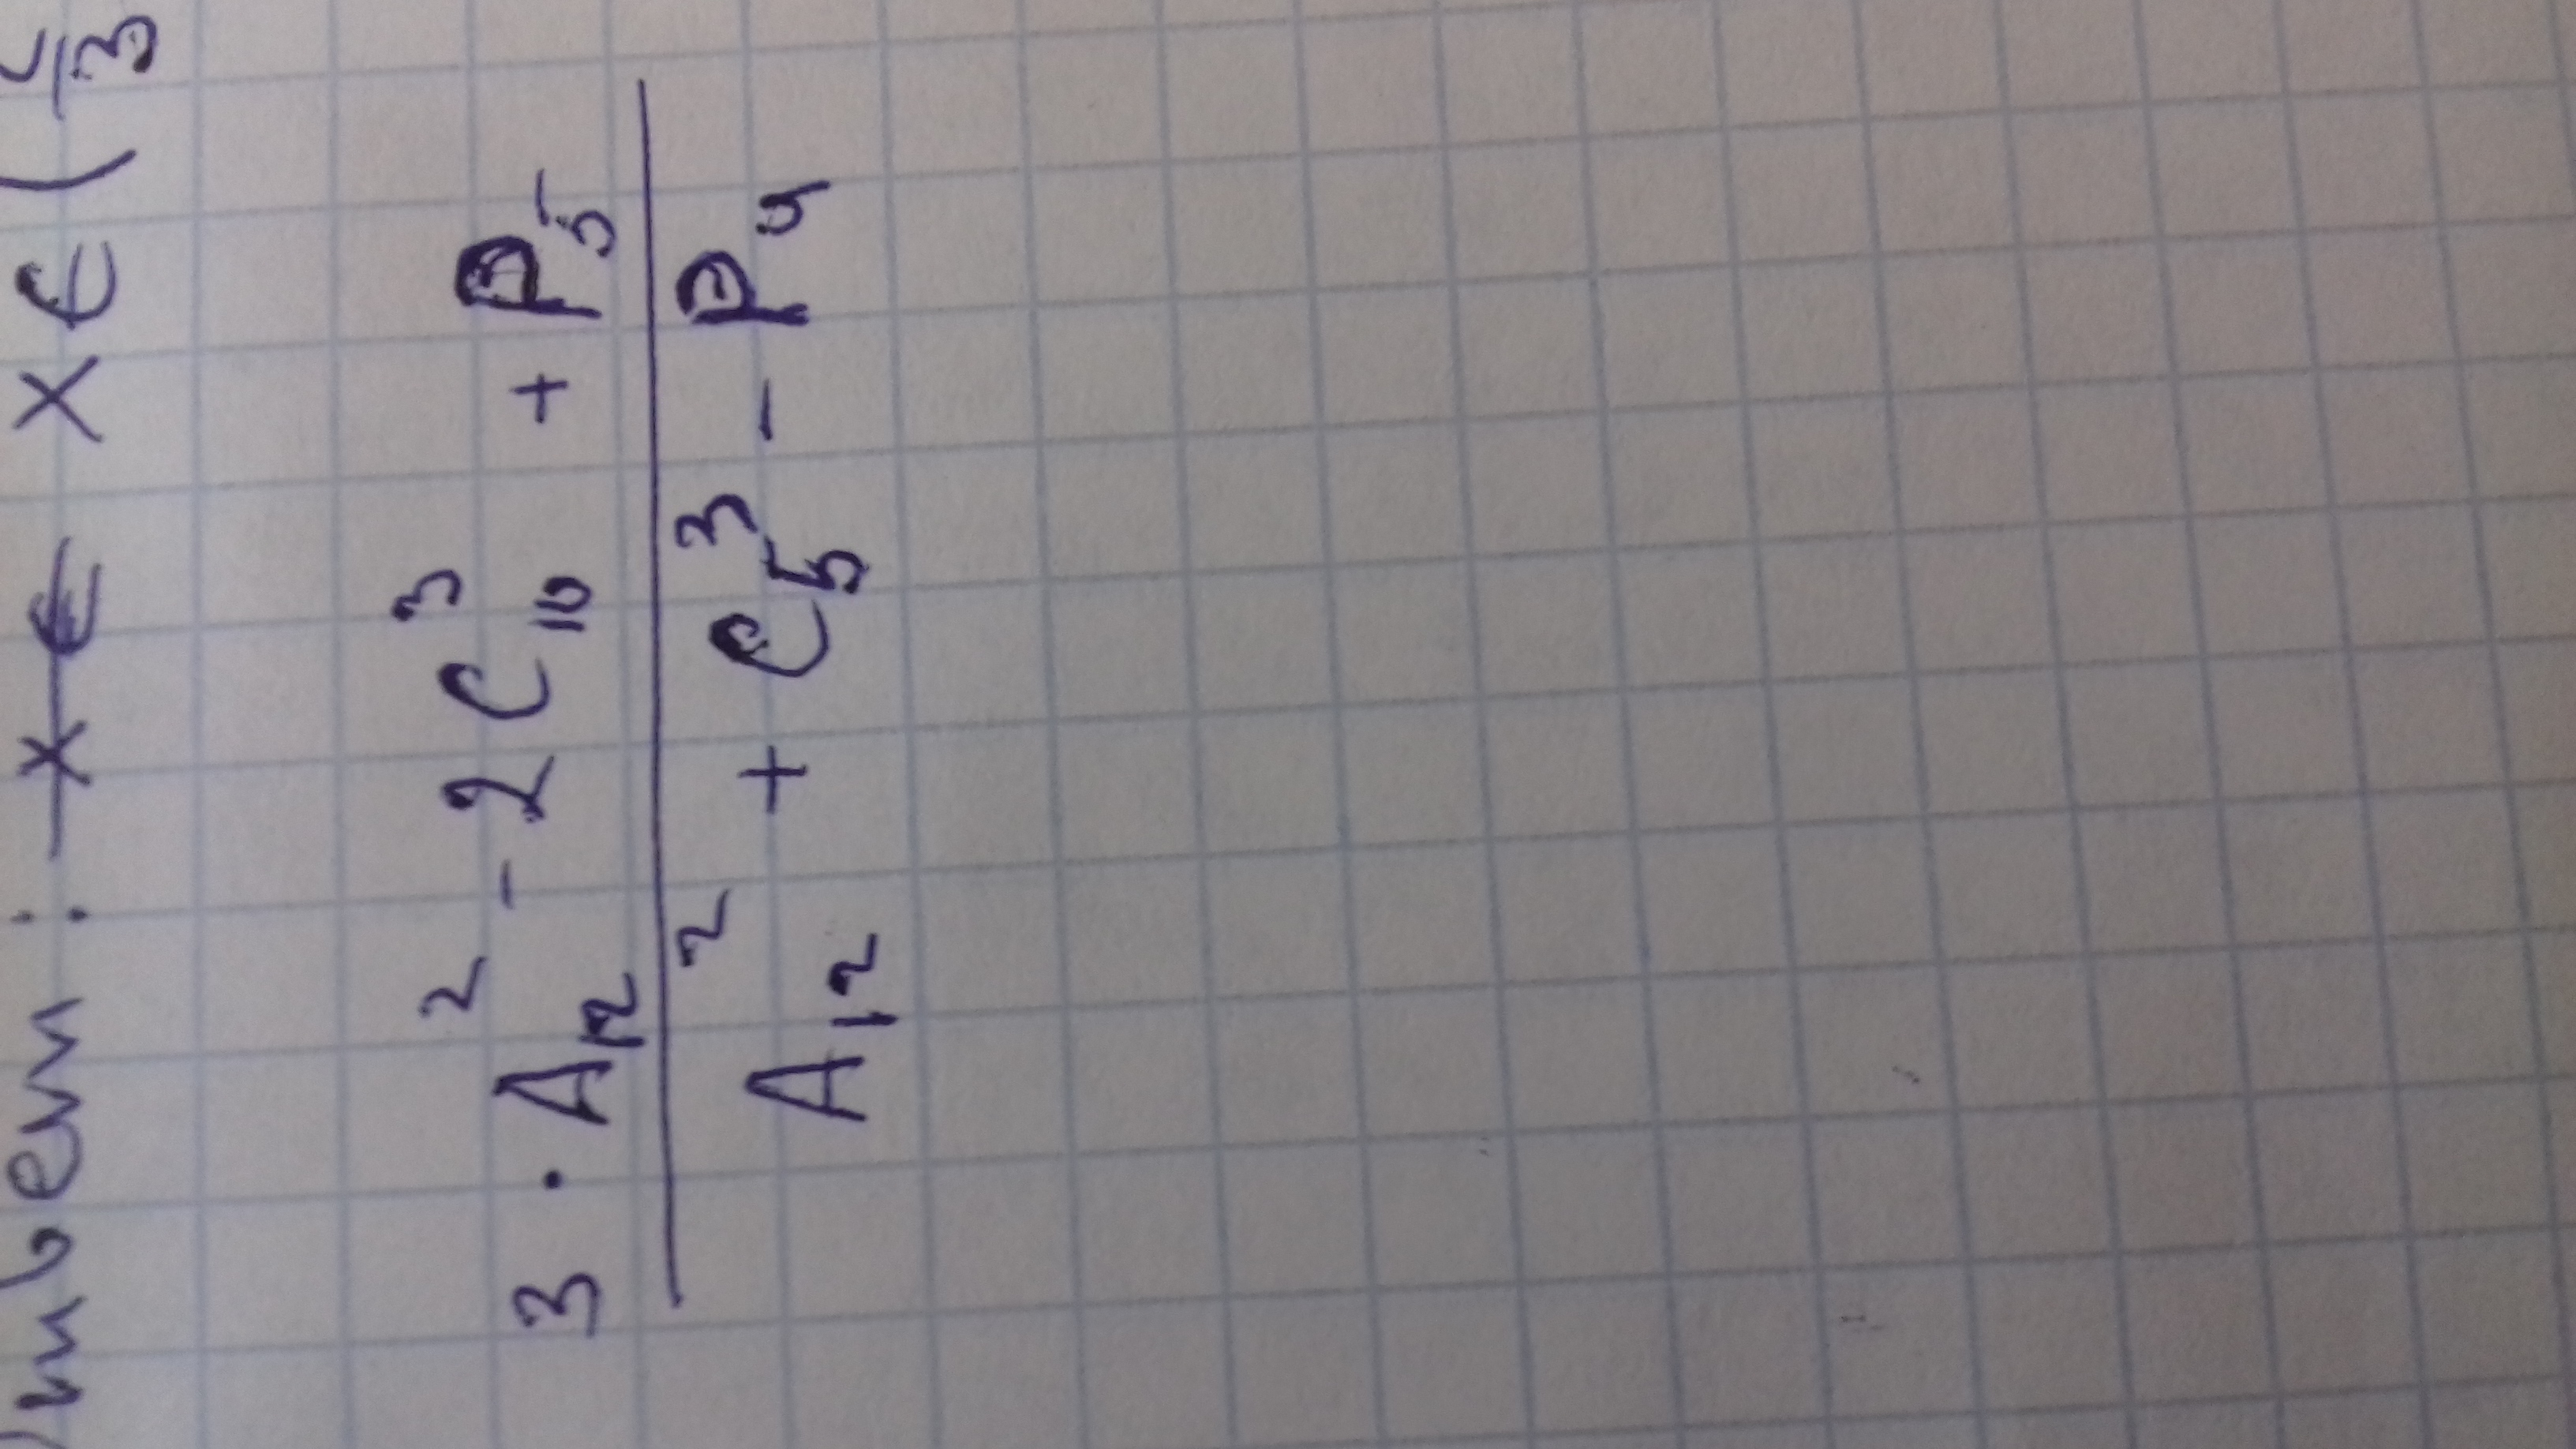 твет: x ∈ (
3 · A₁₂² - 2C₁₀³ + P₅
A₁₂² + C₅³ - P₄